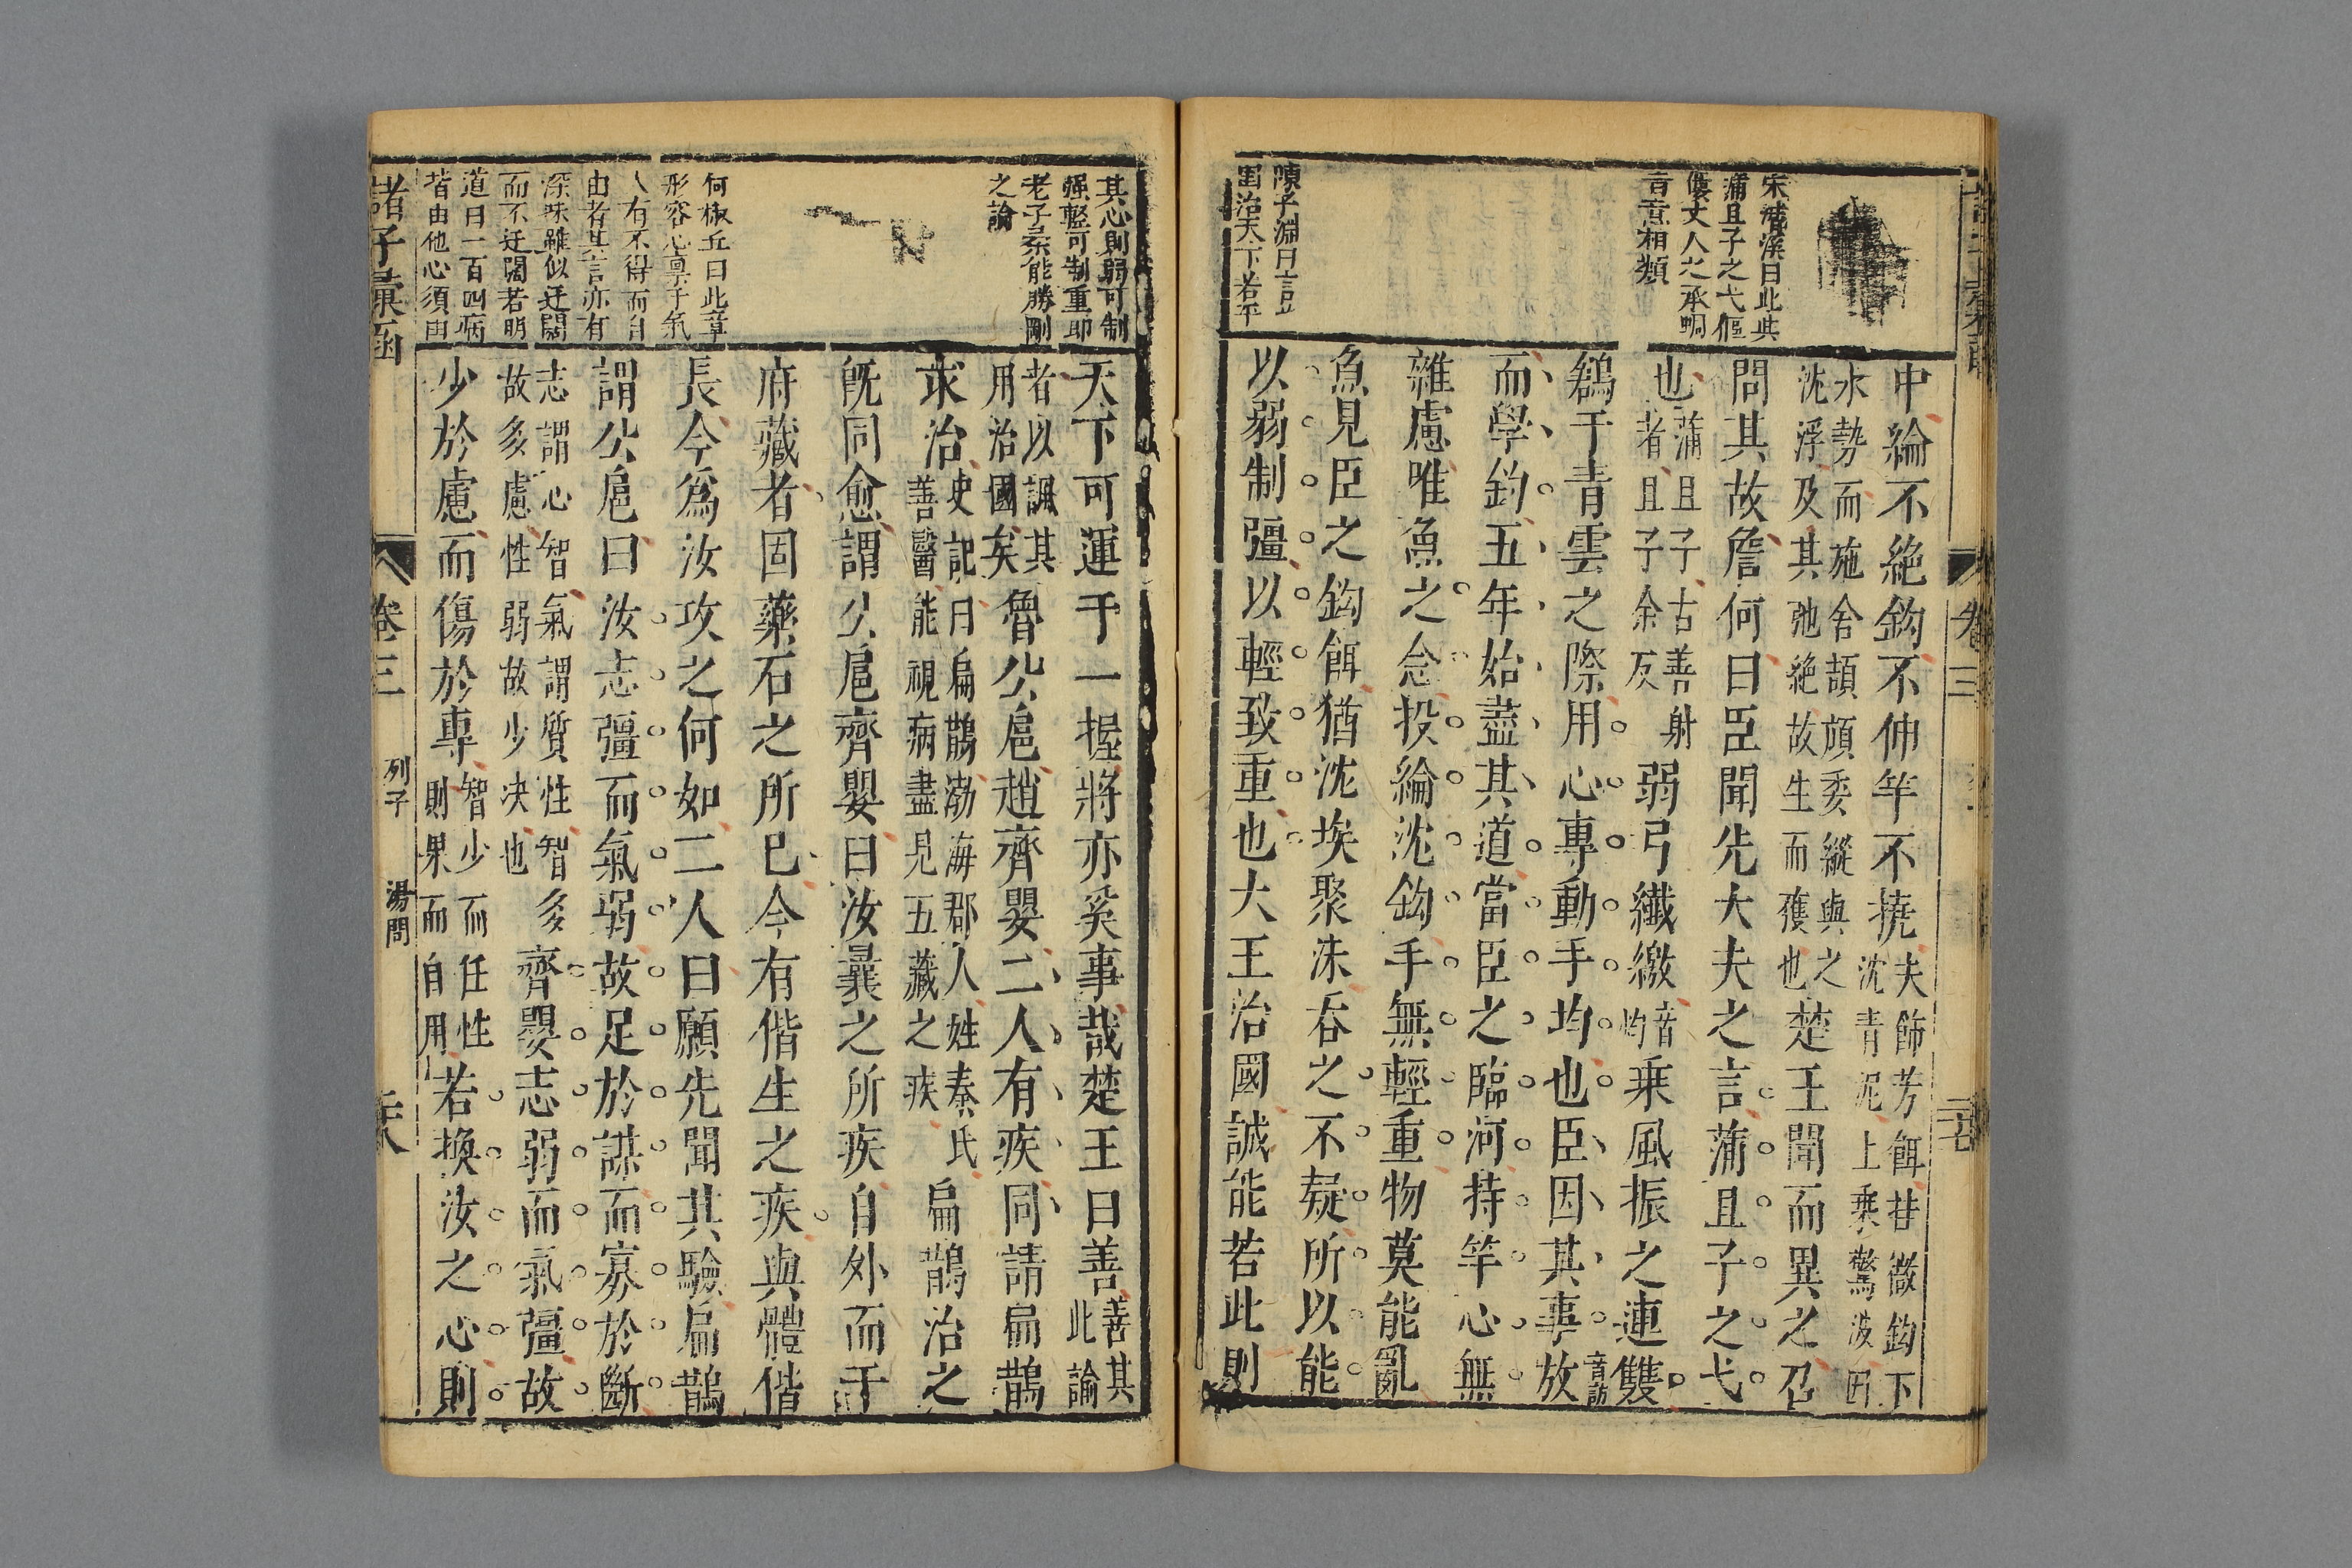 宋潛溪曰此與
蒲且子之弋傴
僂丈人之承蜩
音意相類
陳子淵曰言以
國治天下若乎
中綸不絶鈎不伸竿不撓夫飾芳餌挂微鈎下
沈青泥上乘驚波因
水勢而施舍頡頏委縱與之
沈浮及其弛絶故生而獲也楚王聞而異之召
問其故詹何曰臣聞先大夫之言蒲且子之弋
也蒲且子古善射
者且子余反弱弓纖繳音灼乘風振之連雙
鶬于青雲之際用心專動手均也臣因其事放音訪
而學釣五年始盡其道當臣之臨河持竿心無
雜慮唯魚之念投綸沈鈎手無輕重物莫能亂
魚見臣之鈎餌猶沈埃聚沫吞之不疑所以能
以弱制彊以輕致重也大王治國誠能若此則
卷三
二十七
其心則弱可制
强輕可制重即
老子柔能勝剛
之論
何椒丘曰此章
形容心稟乎氣
人有不得而自
由者其言亦有
深味雖似迂闊
而不迂闊若明
道曰一百四病
皆由他心須由
天下可運于一握將亦奚事哉楚王曰善善其
此論
者以諷其
用治國矣魯公扈趙齊嬰二人有疾同請扁鵲
求治史記曰扁鵲渤海郡人姓秦氏
善醫能視病盡見五藏之疾扁鵲治之
旣同愈謂公扈齊嬰曰汝曩之所疾自外而干
府藏者固藥石之所已今有偕生之疾與體偕
長今爲汝攻之何如二人曰願先聞其驗扁鵲
謂公扈曰汝志彊而氣弱故足於謀而寡於斷
志謂心智氣謂質性智多
故多慮性弱故少决也齊嬰志弱而氣彊故
少於慮而傷於專智少而任性
則果而自用若換汝之心則
諸子彙函
卷三
列子
湯問
二十八